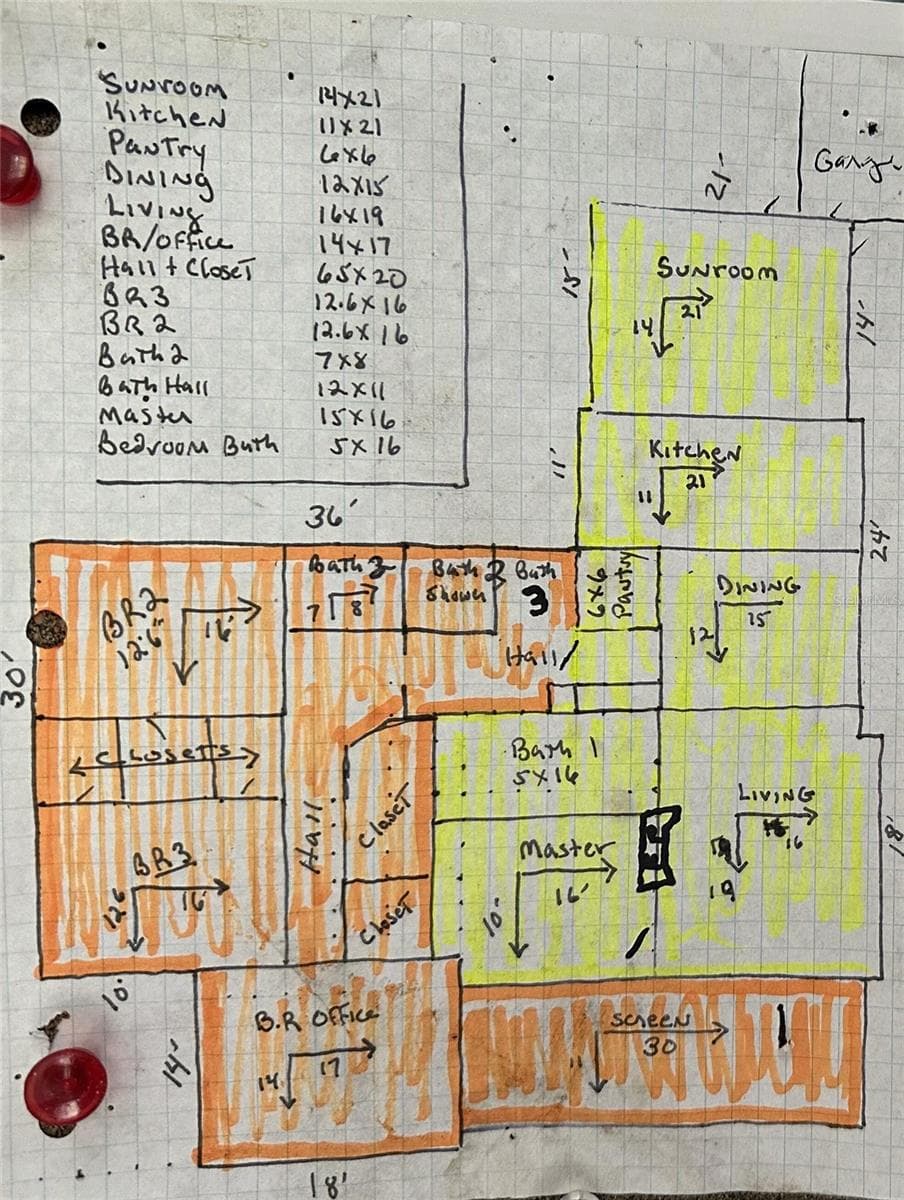 Sunroom 14x21
Kitchen 11x21
Pantry 6x6
Dining 12x15
Living 16x19
BR/office 14x17
Hall + Closet 65x20
BR3 12.6x16
BR2 12.6x16
Bath2 7x8
Bath Hall 12x11
Master 15x16
Bedroom Bath 5x16
21'
Garage
15'
Sunroom
14 21
14'
Kitchen
11'
11 21
36'
24'
Bath 2
7 8
Bath Shower
Bath 3
6x6 Pantry
Dining
12 15
BR2
12.6" 16'
30'
Hall
Closets
Bath 1
5x16
Living
16
19
18'
Hall
Closet
Master
10' 16'
BR3
12.6 16'
Closet
10'
B.R Office
14 17
14'
Screen
11 30
18'